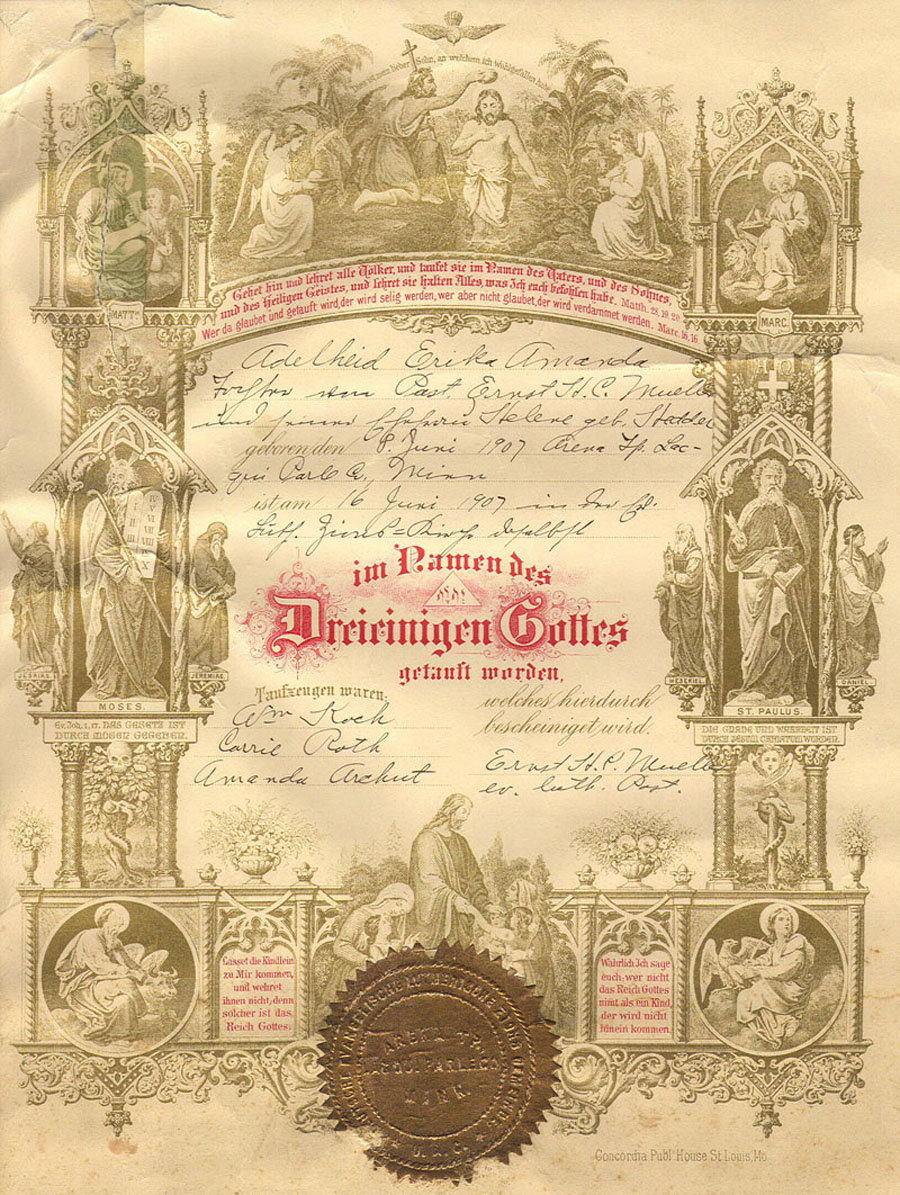 Dies ist mein lieber Sohn, an welchem ich Wohlgefallen habe
Gehet hin und lehret alle Völker, und taufet sie im Namen des Vaters, und des Sohnes,
und des Heiligen Geistes, und lehret sie halten Alles, was Ich euch befohlen habe. Matth. 28, 19. 20.
Wer da glaubet und getauft wird, der wird selig werden, wer aber nicht glaubet, der wird verdammet werden. Marc. 16, 16
MATTH.
MARC.
Adelheid Erika Amanda
Tochter von Past. Ernst H. C. Mueller
und seiner Ehefrau Helene geb.
geboren den 8. Juni 1907 Arena Tp. Lac-
qui Parle Co., Minn
ist am 16 Juni 1907 in der Ev.
Luth. Zions-Kirche daselbst
im Namen des
Dreieinigen Gottes
getauft worden,
JESAIAS.
JEREMIAS.
HESEKIEL.
DANIEL.
MOSES.
ST. PAULUS.
Ev. Joh. 1, 17. DAS GESETZ IST
DURCH MOSEN GEGEBEN.
DIE GNADE UND WAHRHEIT IST
DURCH JESUM CHRISTUM WORDEN.
Taufzeugen waren:
Wm Koch
Carrie Roth
Amanda Archut
welches hierdurch
bescheiniget wird.
Ernst H. C. Mueller
ev. luth. Past.
Lasset die Kindlein
zu Mir kommen,
und wehret
ihnen nicht, denn
solcher ist das
Reich Gottes.
Wahrlich Ich sage
euch: wer nicht
das Reich Gottes
nimt als ein Kind,
der wird nicht
hinein kommen.
MINN.
U.A.C.
Concordia Publ. House St. Louis, Mo.